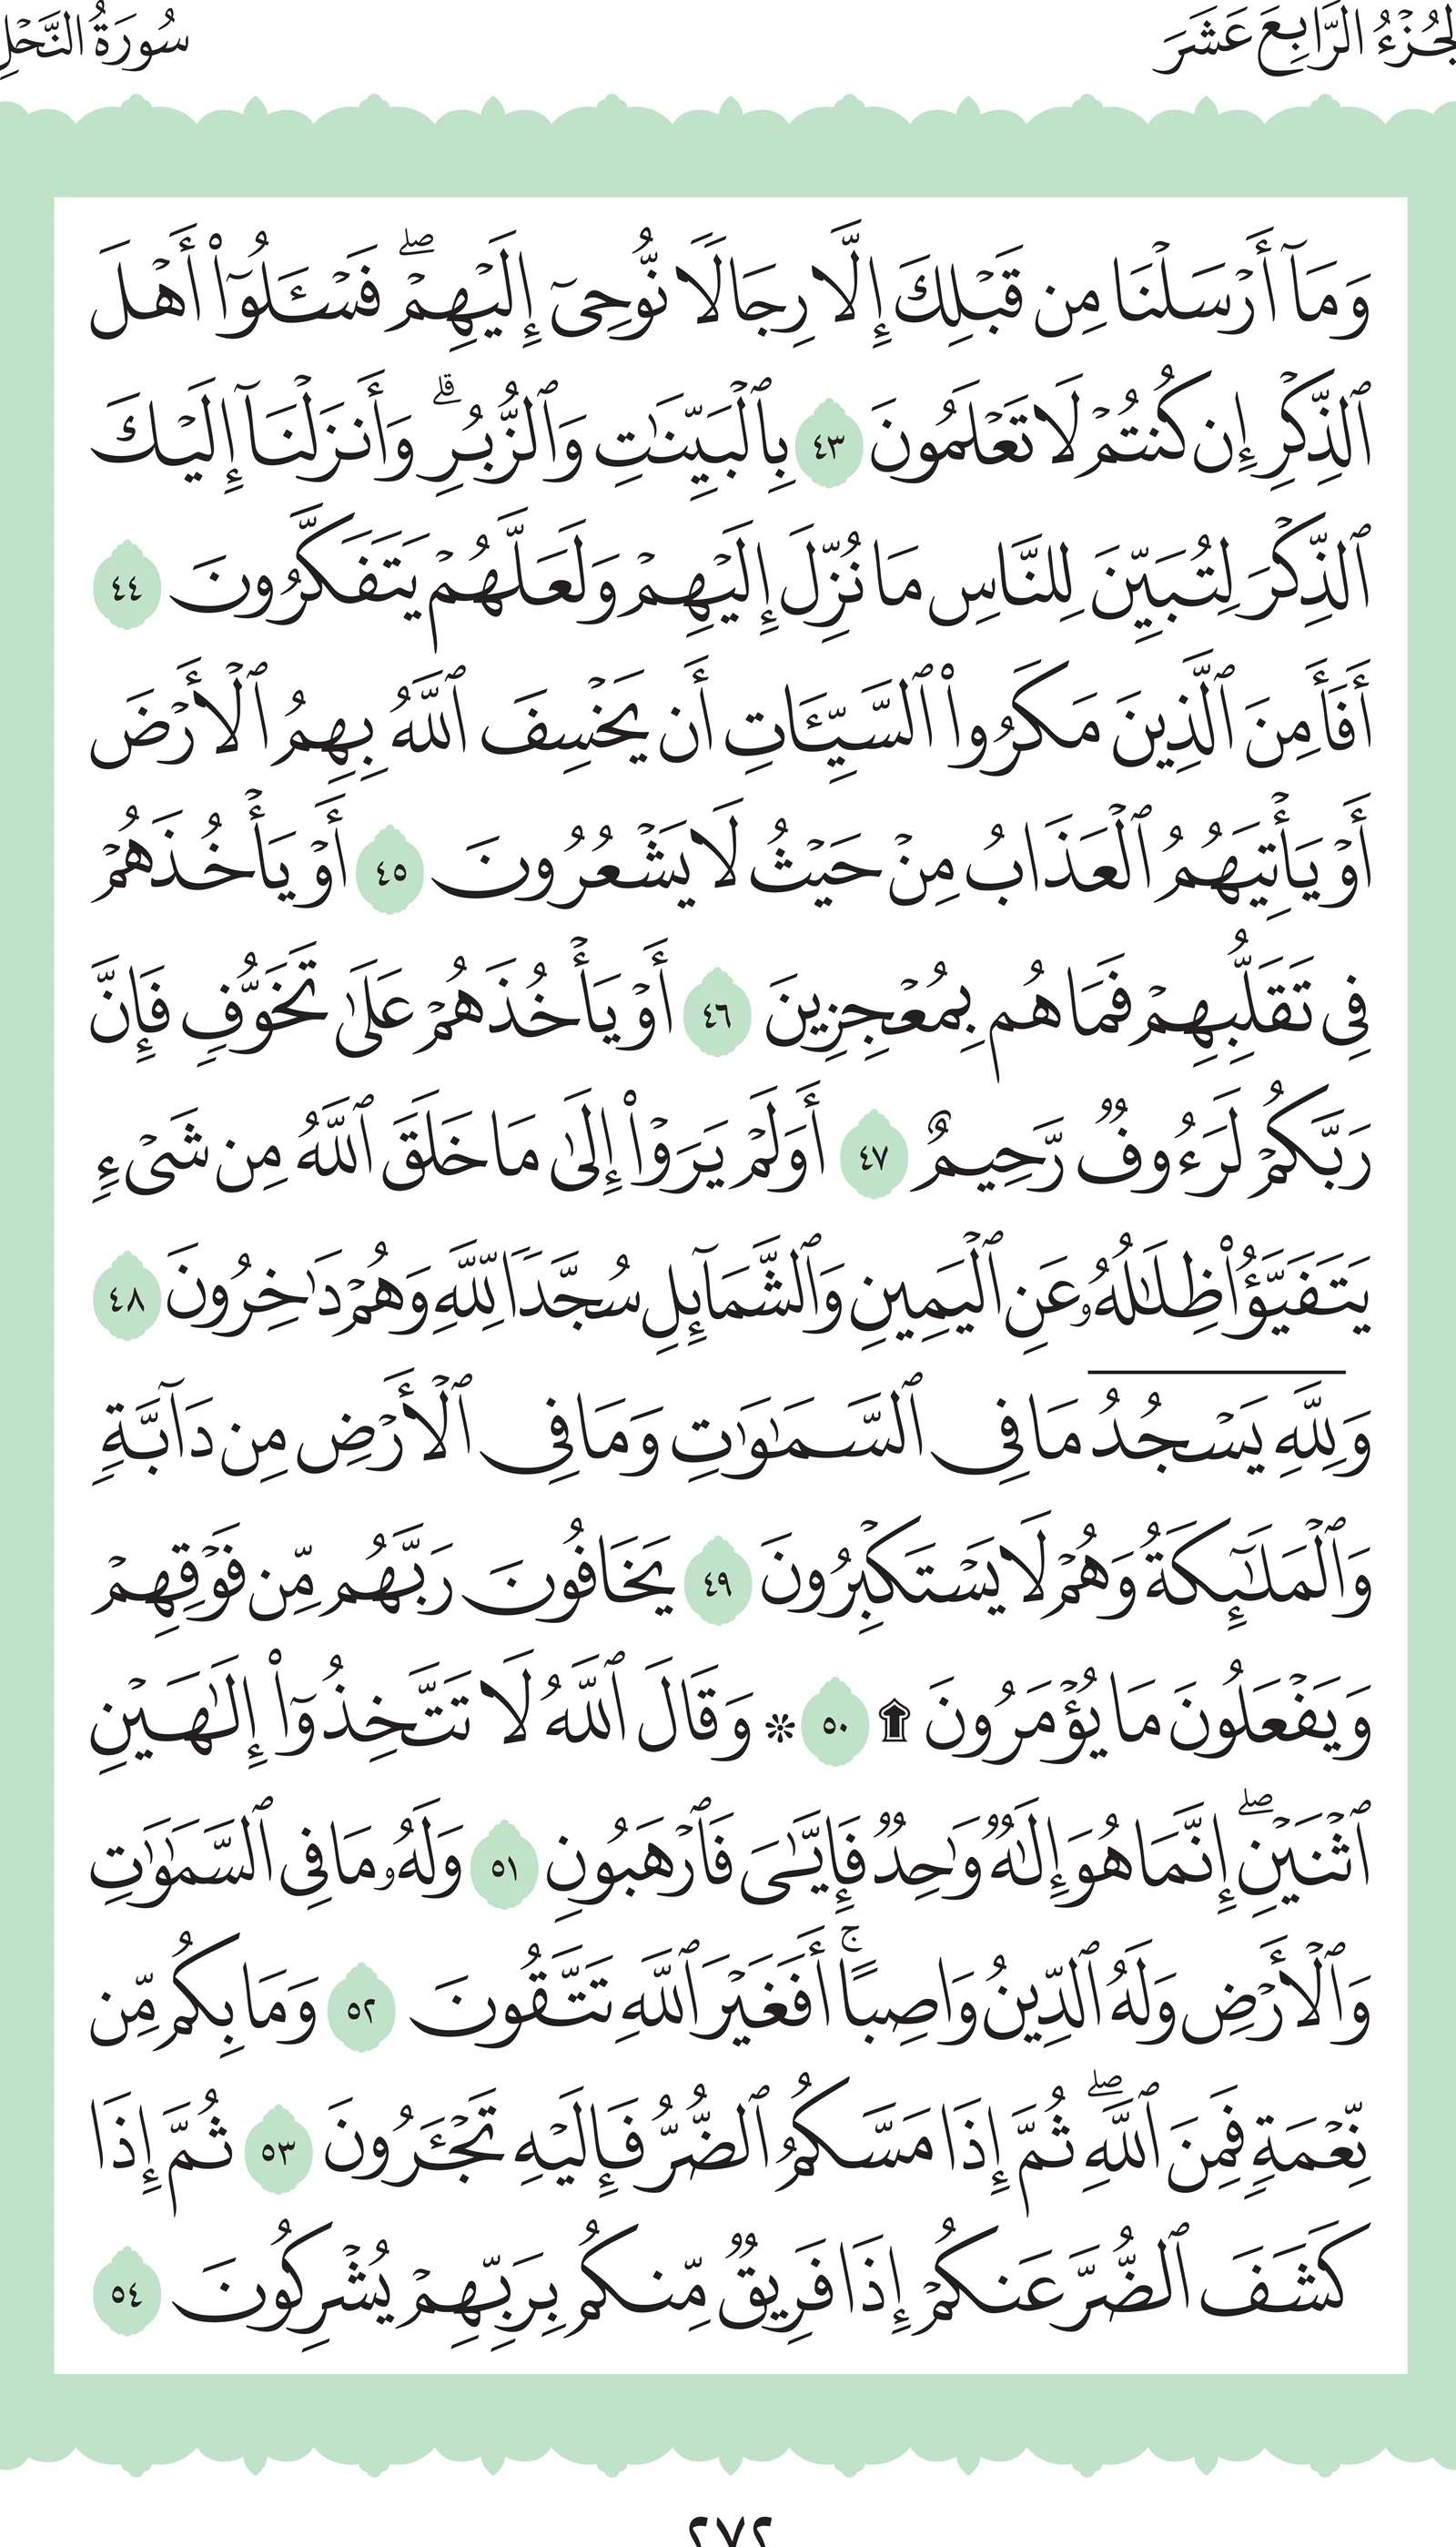 الجُزْءُ الرَّابِعَ عَشَرَ
سُورَةُ النَّحْلِ
وَمَآ أَرْسَلْنَا مِن قَبْلِكَ إِلَّا رِجَالًا نُّوحِىٓ إِلَيْهِمْۖ فَسْـَٔلُوٓا۟ أَهْلَ
ٱلذِّكْرِ إِن كُنتُمْ لَا تَعْلَمُونَ ٤٣ بِٱلْبَيِّنَٰتِ وَٱلزُّبُرِۗ وَأَنزَلْنَآ إِلَيْكَ
ٱلذِّكْرَ لِتُبَيِّنَ لِلنَّاسِ مَا نُزِّلَ إِلَيْهِمْ وَلَعَلَّهُمْ يَتَفَكَّرُونَ ٤٤
أَفَأَمِنَ ٱلَّذِينَ مَكَرُوا۟ ٱلسَّيِّـَٔاتِ أَن يَخْسِفَ ٱللَّهُ بِهِمُ ٱلْأَرْضَ
أَوْ يَأْتِيَهُمُ ٱلْعَذَابُ مِنْ حَيْثُ لَا يَشْعُرُونَ ٤٥ أَوْ يَأْخُذَهُمْ
فِى تَقَلُّبِهِمْ فَمَا هُم بِمُعْجِزِينَ ٤٦ أَوْ يَأْخُذَهُمْ عَلَىٰ تَخَوُّفٍ فَإِنَّ
رَبَّكُمْ لَرَءُوفٌ رَّحِيمٌ ٤٧ أَوَلَمْ يَرَوْا۟ إِلَىٰ مَا خَلَقَ ٱللَّهُ مِن شَىْءٍ
يَتَفَيَّؤُا۟ ظِلَٰلُهُۥ عَنِ ٱلْيَمِينِ وَٱلشَّمَآئِلِ سُجَّدًا لِّلَّهِ وَهُمْ دَٰخِرُونَ ٤٨
وَلِلَّهِ يَسْجُدُ مَا فِى ٱلسَّمَٰوَٰتِ وَمَا فِى ٱلْأَرْضِ مِن دَآبَّةٍ
وَٱلْمَلَٰٓئِكَةُ وَهُمْ لَا يَسْتَكْبِرُونَ ٤٩ يَخَافُونَ رَبَّهُم مِّن فَوْقِهِمْ
وَيَفْعَلُونَ مَا يُؤْمَرُونَ ۩ ٥٠ ۞ وَقَالَ ٱللَّهُ لَا تَتَّخِذُوٓا۟ إِلَٰهَيْنِ
ٱثْنَيْنِۖ إِنَّمَا هُوَ إِلَٰهٌ وَٰحِدٌ فَإِيَّٰىَ فَٱرْهَبُونِ ٥١ وَلَهُۥ مَا فِى ٱلسَّمَٰوَٰتِ
وَٱلْأَرْضِ وَلَهُ ٱلدِّينُ وَاصِبًاۚ أَفَغَيْرَ ٱللَّهِ تَتَّقُونَ ٥٢ وَمَا بِكُم مِّن
نِّعْمَةٍ فَمِنَ ٱللَّهِۖ ثُمَّ إِذَا مَسَّكُمُ ٱلضُّرُّ فَإِلَيْهِ تَجْـَٔرُونَ ٥٣ ثُمَّ إِذَا
كَشَفَ ٱلضُّرَّ عَنكُمْ إِذَا فَرِيقٌ مِّنكُم بِرَبِّهِمْ يُشْرِكُونَ ٥٤
٢٧٢